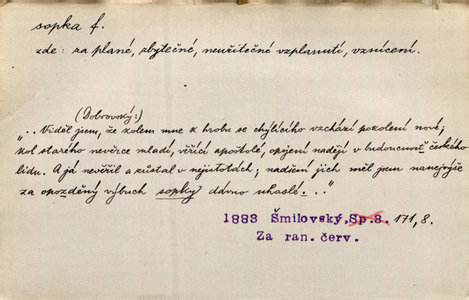 sopka f.
zde: za plané, zbytečné, neužitečné vzplanutí, vznícení.
(Dobrovský:)
"..Viděl jsem, že kolem mne k hrobu se chýlícího vzchází pokolení nové;
kol starého nevěrce mladí, věřící apoštolé, opojení nadějí v budoucnost českého
lidu. A já nevěřil a zůstal v nejistotách; nadšení jich měl jsem nanejvýše
za opozděný výbuch sopky dávno uhaslé..."
1883 Šmilovský, Sp.8. 171,8.
Za ran. červ.